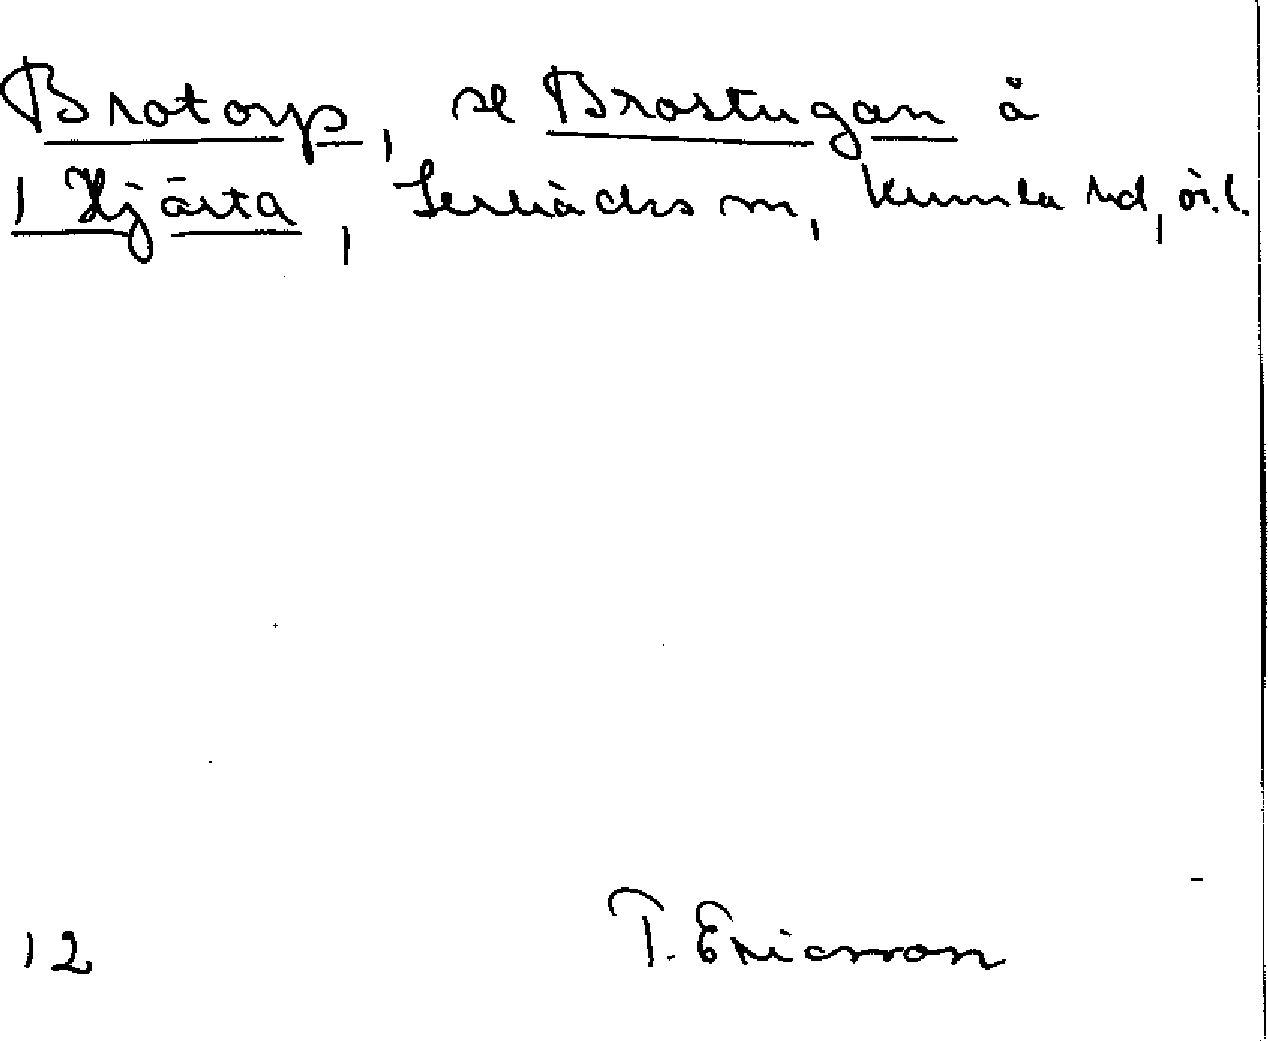 Brotorp, se Brostugan å
1 Hjärta, Lerbäcks sn, Kumla hd, ör.l.
12 T. Ericsson